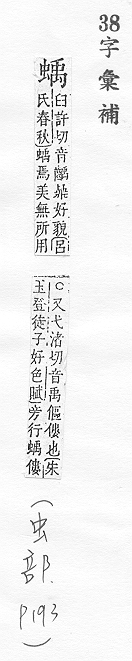 38字彙補
蝺
臼許切音齲蝺好貌〔呂
氏春秋蝺焉美無所用
〇又弋渚切音禹傴僂也〔朱
玉登徒子好色賦〕旁行蝺僂
(虫部.
P193)